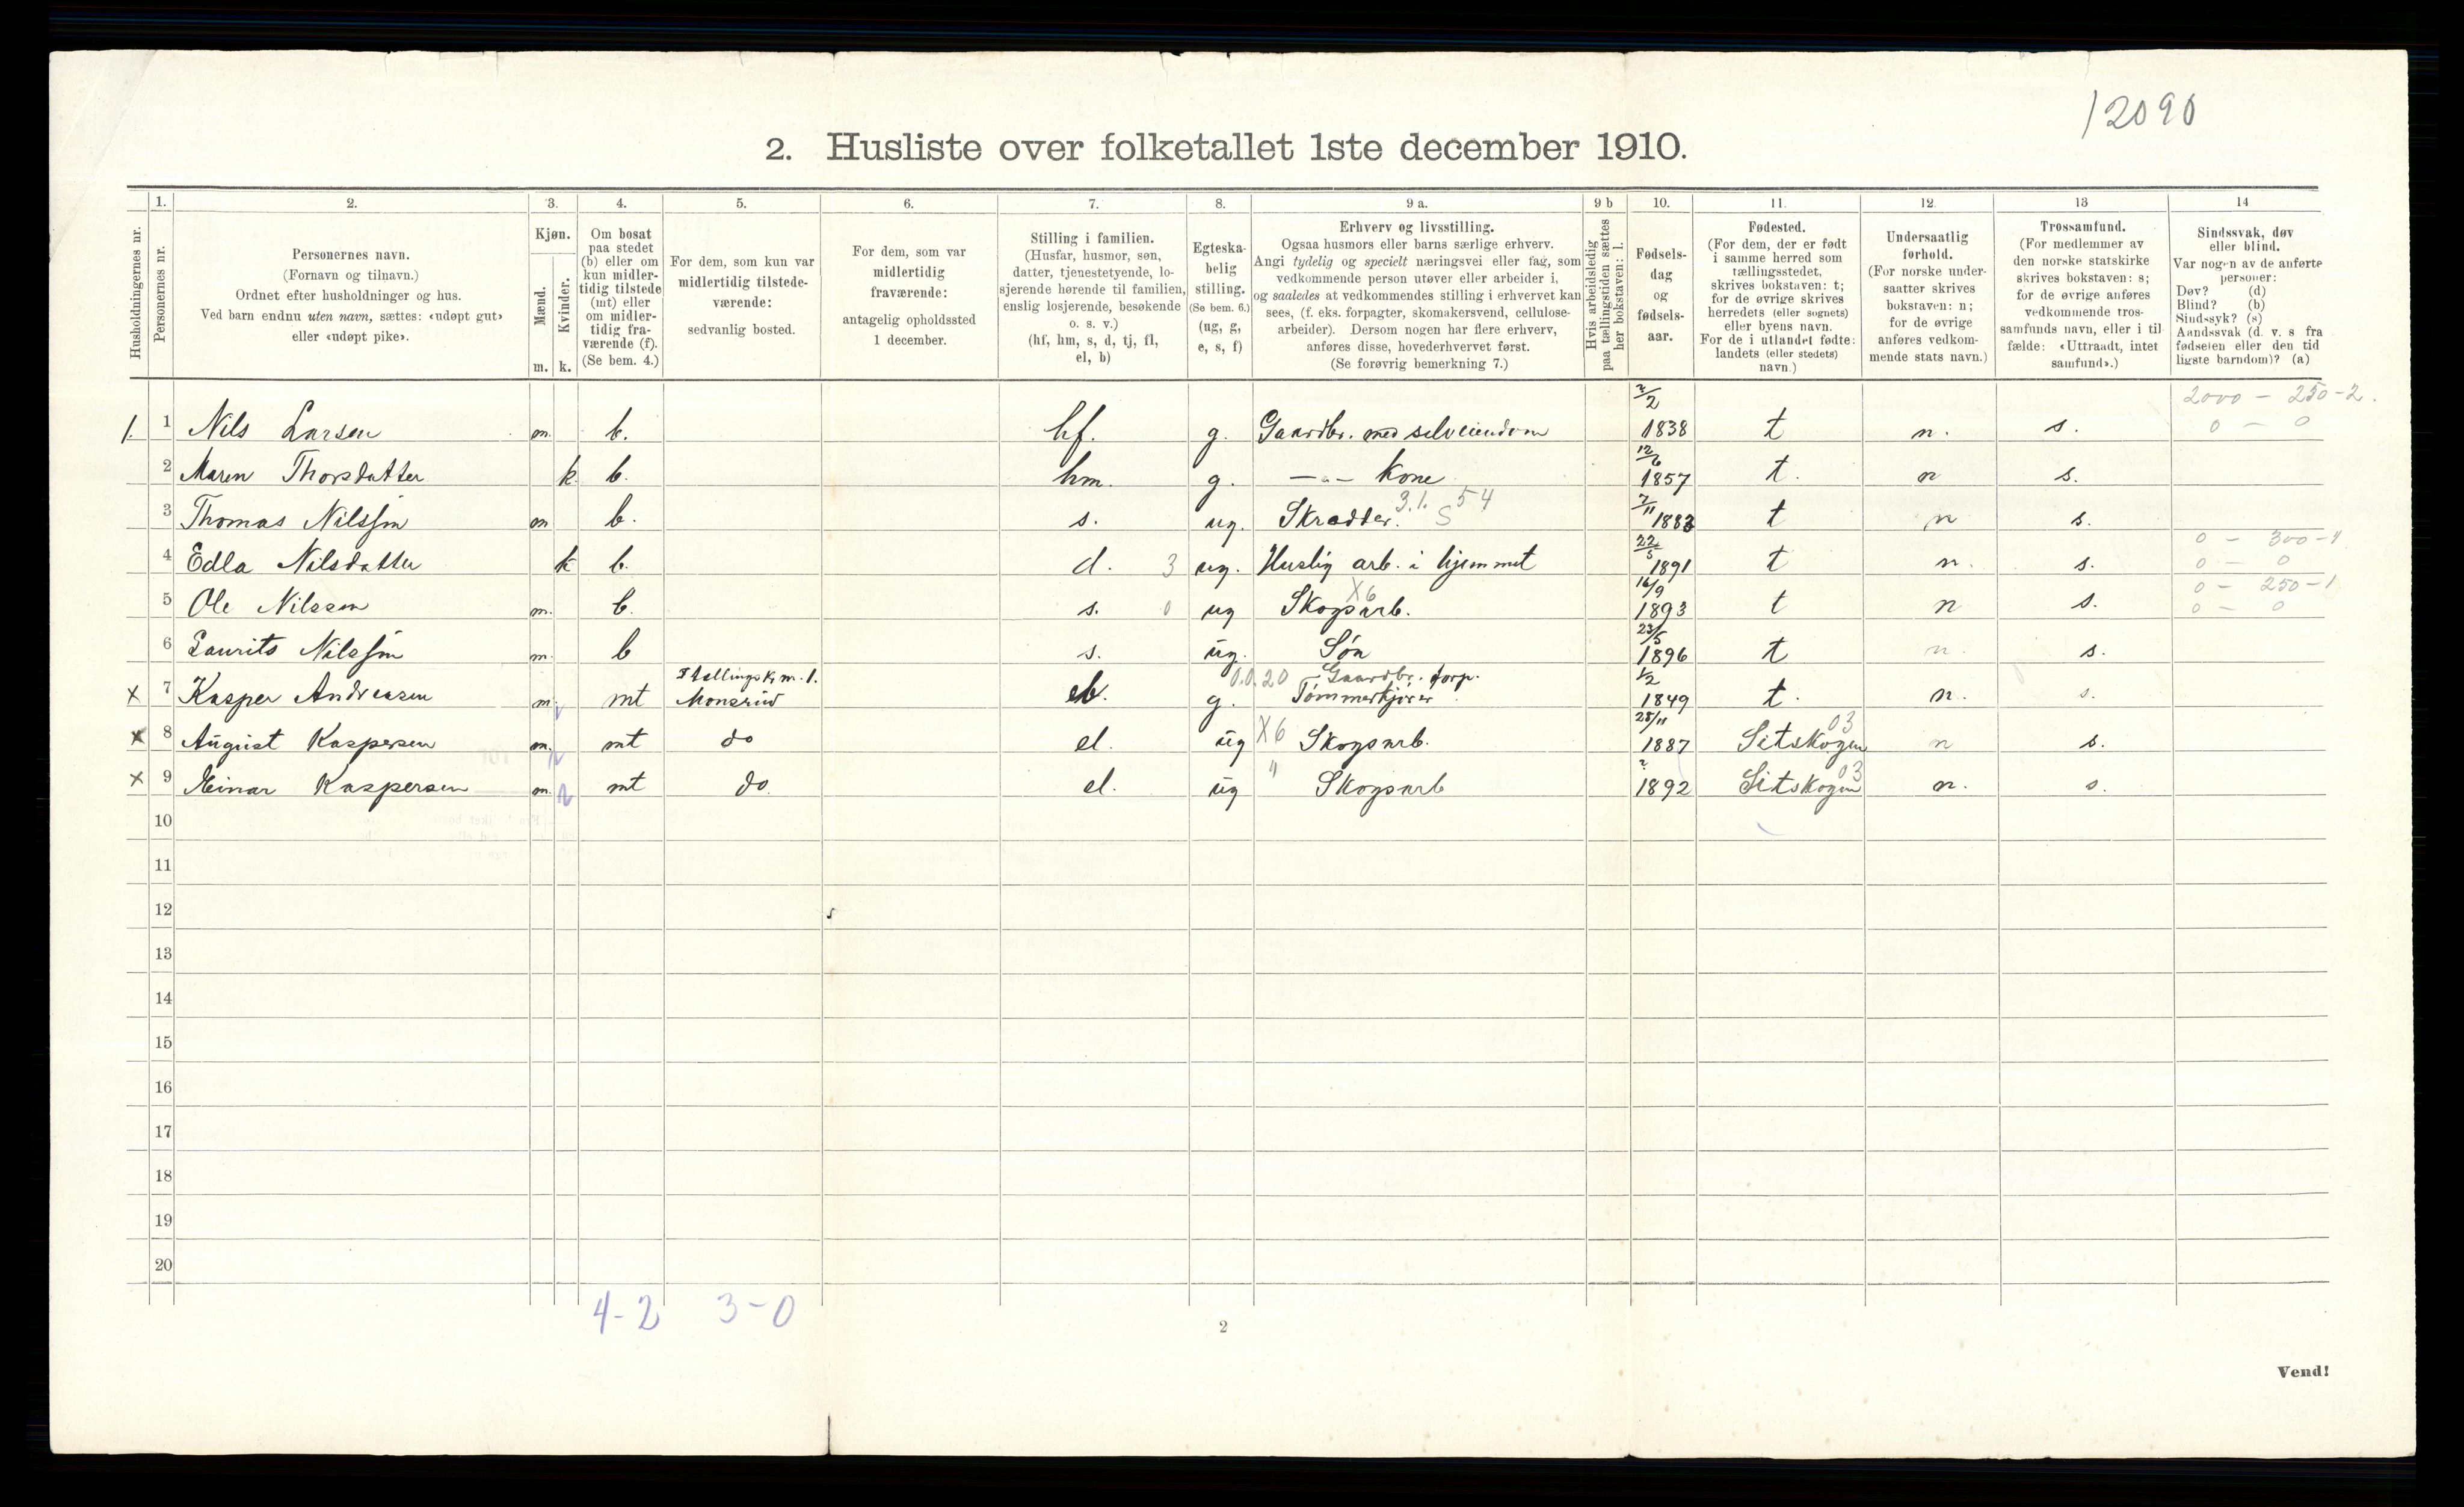 12090
2. Husliste over folketallet 1ste december 1910.
1. 2. 3. 4. 5. 6. 7. 8. 9 a. 9 b 10. 11. 12. 13 14
Husholdningernes nr.
Personernes nr.
Personernes navn.
(Fornavn og tilnavn.)
Ordnet efter husholdninger og hus.
Ved barn endnu uten navn, sættes: «udøpt gut»
eller «udøpt pike».
Kjøn.
Mænd.
Kvinder.
m. k.
Om bosat
paa stedet
(b) eller om
kun midler-
tidig tilstede
(mt) eller
om midler-
tidig fra-
værende (f).
(Se bem. 4.)
For dem, som kun var
midlertidig tilstede-
værende:
sedvanlig bosted.
For dem, som var
midlertidig
fraværende:
antagelig opholdssted
1 december.
Stilling i familien.
(Husfar, husmor, søn,
datter, tjenestetyende, lo-
sjerende hørende til familien,
enslig losjerende, besøkende
o. s. v.)
(hf, hm, s, d, tj, fl,
el, b)
Egteska-
belig
stilling.
(Se bem. 6.)
(ug, g,
e, s, f)
Erhverv og livsstilling.
Ogsaa husmors eller barns særlige erhverv.
Angi tydelig og specielt næringsvei eller fag, som
vedkommende person utøver eller arbeider i,
og saaledes at vedkommendes stilling i erhvervet kan
sees, (f. eks. forpagter, skomakersvend, cellulose-
arbeider). Dersom nogen har flere erhverv,
anføres disse, hovederhvervet først.
(Se forøvrig bemerkning 7.)
Hvis arbeidsledig
paa tællingstiden sættes
her bokstaven: l.
Fødsels-
dag
og
fødsels-
aar.
Fødested.
(For dem, der er født
i samme herred som
tællingsstedet,
skrives bokstaven: t;
for de øvrige skrives
herredets (eller sognets)
eller byens navn.
For de i utlandet fødte:
landets (eller stedets)
navn.)
Undersaatlig
forhold.
(For norske under-
saatter skrives
bokstaven: n;
for de øvrige
anføres vedkom-
mende stats navn.)
Trossamfund.
(For medlemmer av
den norske statskirke
skrives bokstaven: s;
for de øvrige anføres
vedkommende tros-
samfunds navn, eller i til
fælde: «Uttraadt, intet
samfund».)
Sindssvak, døv
eller blind.
Var nogen av de anførte
personer:
Døv? (d)
Blind? (b)
Sindssyk? (s)
Aandssvak (d. v. s fra
fødselen eller den tid
ligste barndom)? (a)
2/2 2000 - 250-2.
1. 1 Nils Larsen m. b. hf. g. Gaardbr. med selveiendom 1838 t n. s. 0 - 0
12/6
2 Maren Thorsdatter k. b. hm. g. -"- Kone 1857 t. n s.
3.1. S 54 7/11
3 Thomas Nilssøn m b. s. ug. Skrædder. 1883 t n s.
22/5 0 - 300-4
4 Edla Nilsdatter k b. d. 3 ug. Huslig arb. i hjemmet 1891 t n. s. 0 - 0
X6 16/9 0 - 250-1
5 Ole Nilssen m. b. s. 0 ug Skogsarb. 1893 t n s. 0 - 0
23/5
6 Laurits Nilssøn m. b s. ug. Søn 1896 t n. s.
Tællingskr. n. 1. 0.0.20 Gaardbr. forp. 1/2
x 7 Kasper Andreasen m. mt Monsrud eb. g. Tømmerkjører 1849 t. n. s.
25/11 03
x 8 August Kaspersen m. mt do el. ug X6 Skogsarb. 1887 Setskogen n s.
? 03
x 9 Einar Kaspersen m. mt do. el. ug " Skogsarb 1892 Setskogen n. s.
10
11
12
13
14
15
16
17
18
19
20
4-2 3-0
2
Vend!